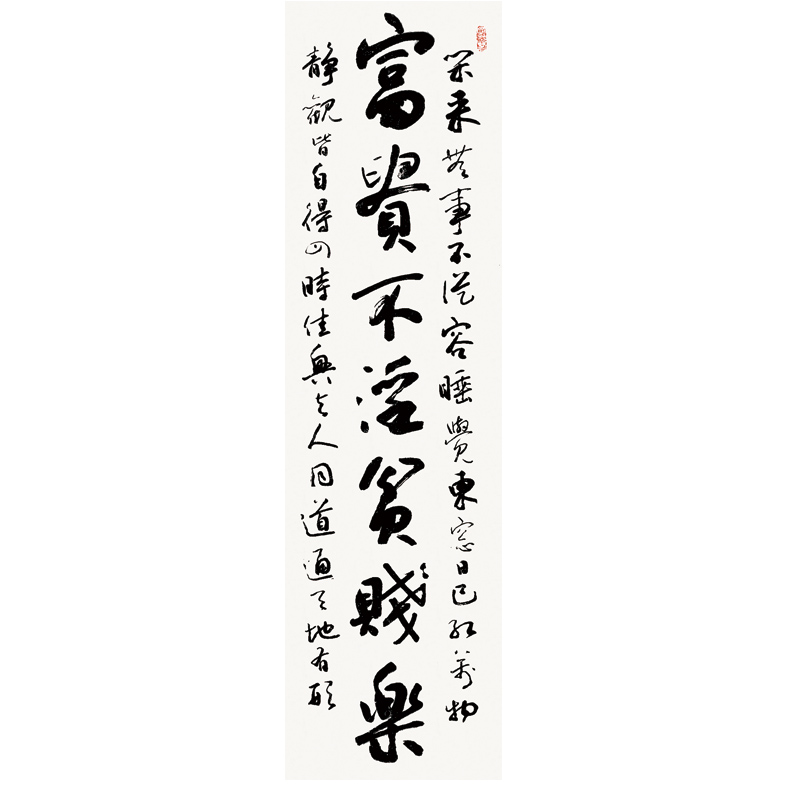 閒来無事不從容睡覺東窓日已紅萬物
富貴不淫貧賤樂
静觀皆自得四時佳興与人同道通天地有形